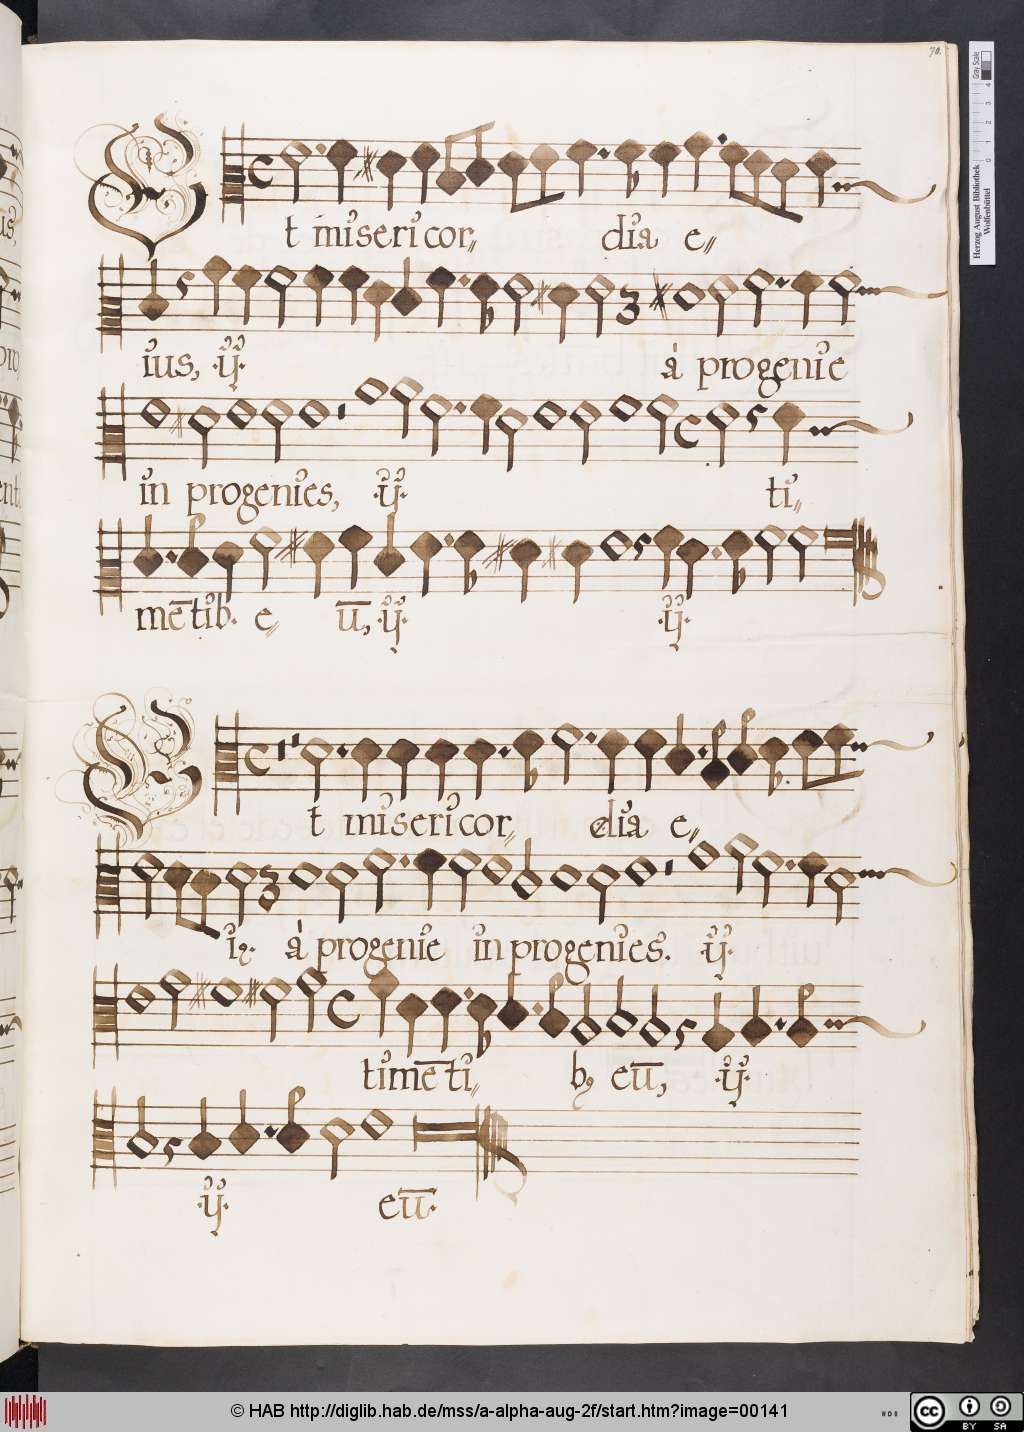 70.
Et misericor„ dia e„
ius, ·ij· à progenie
in progenies, ·ij· ti„
mētib. e„ ū, ·ij· ·ij·
Et misericor„ dia e„
iꝰ. à progenie in progenies. ·ij·
timēti„ bꝫ eū, ·ij·
·ij· eū.
Gray Scale
0 1 2 3 4
Herzog August Bibliothek
Wolfenbüttel
© HAB http://diglib.hab.de/mss/a-alpha-aug-2f/start.htm?image=00141
cc BY SA